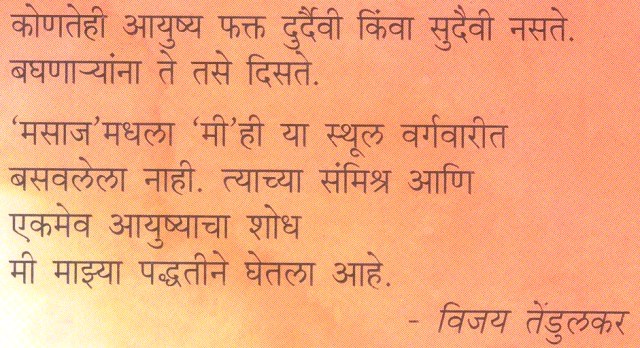 कोणतेही आयुष्य फक्त दुर्दैवी किंवा सुदैवी नसते.
बघणाऱ्यांना ते तसे दिसते.
‘मसाज’मधला ‘मी’ही या स्थूल वर्गवारीत
बसवलेला नाही. त्याच्या संमिश्र आणि
एकमेव आयुष्याचा शोध
मी माझ्या पद्धतीने घेतला आहे.
- विजय तेंडुलकर